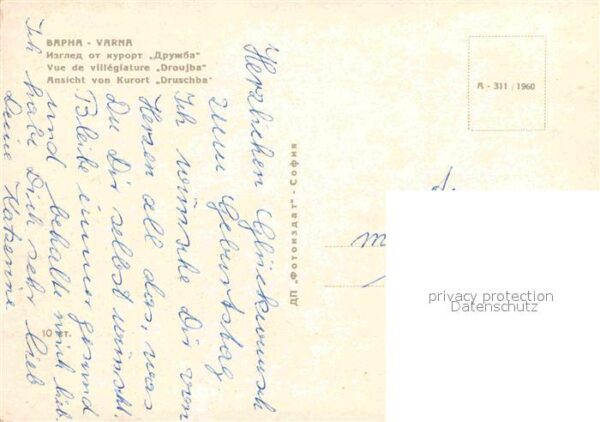 ВАРНА - VARNA
Изглед от курорт „Дружба"
Vue de villégiature „Droujba"
Ansicht von Kurort „Druschba"
А - 311 / 1960
ДП „Фотоиздат" - София
10 ст.
Herzlichen Glückwunsch
zum Geburtstag
Ich wünsche Dir von
Herzen all das, was
Du Dir selbst wünscht.
Bleibe immer gesund
und behalte mich lieb.
Ich habe Dich sehr lieb
Deine
privacy protection
Datenschutz